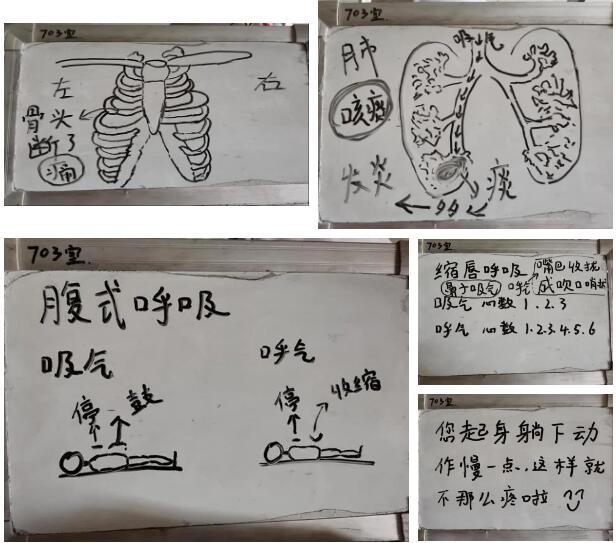 703室
左 右
骨头
断了
痛
703室
肺
咳痰
发炎 痰
703室
腹式呼吸
吸气 呼气
停 鼓 停 收缩
703室
缩唇呼吸 嘴巴收拢
鼻子吸气 呼气 成吹口哨状
吸气 心数 1.2.3
呼气 心数 1.2.3.4.5.6
703室
您起身躺下动
作慢一点..这样就
不那么疼啦